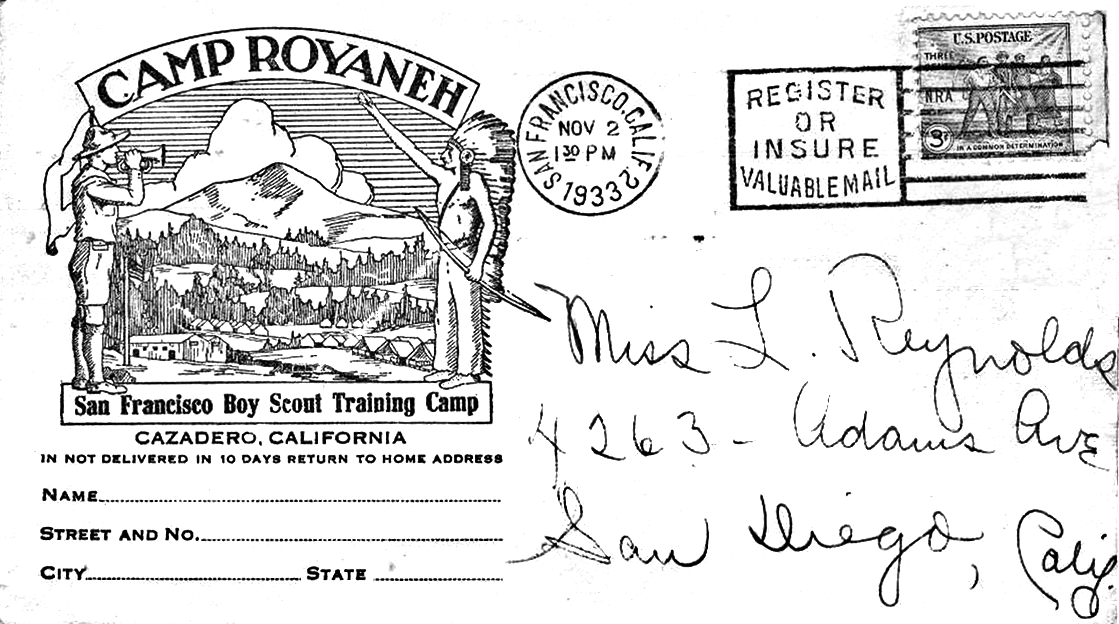 CAMP ROYANEH
San Francisco Boy Scout Training Camp
CAZADERO, CALIFORNIA
IN NOT DELIVERED IN 10 DAYS RETURN TO HOME ADDRESS
NAME
STREET AND NO.
CITY STATE
SAN FRANCISCO, CALIF. 2
NOV 2
1 30 PM
1933
REGISTER
OR
INSURE
VALUABLE MAIL
U.S. POSTAGE
THREE
NRA
3¢
IN A COMMON DETERMINATION
Miss L. Reynolds
4263 - Adams Ave
San Diego, Calif.